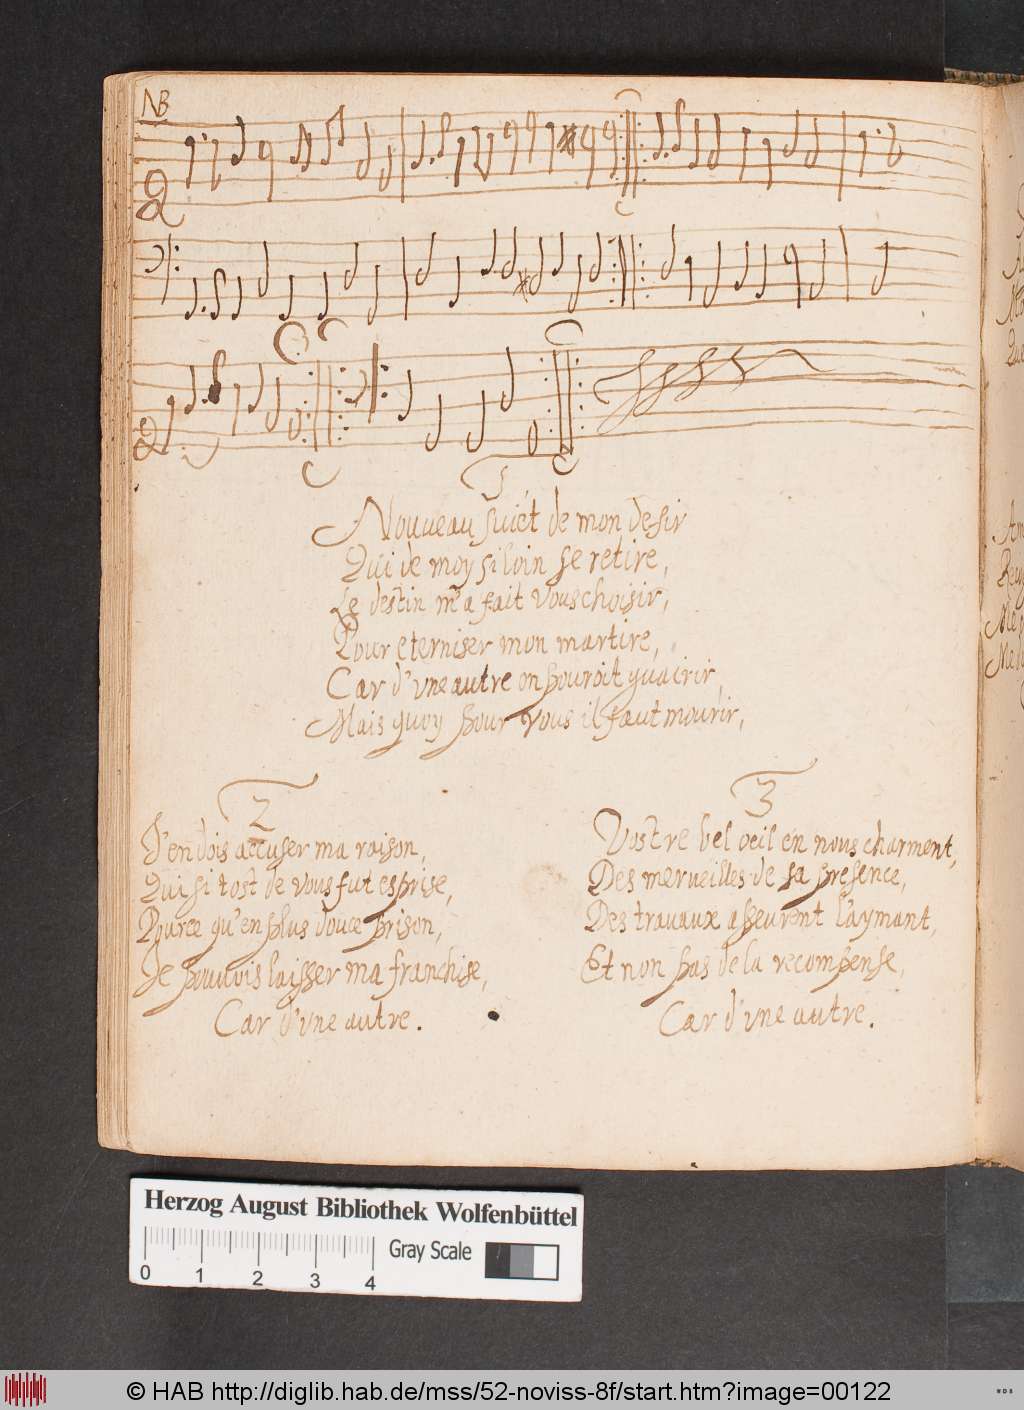 NB
1
Nouueau suiet de mon desir
Qui de moy si loin se retire,
Le destin m'a fait vous choisir,
Pour eterniser mon martire,
Car d'vne autre on pouroit guairir,
Mais quoy pour vous il faut mourir,
2
J'en dois accuser ma raison,
Qui si tost de vous fut esprise,
Pource qu'en plus douce prison,
Je pouuois laisser ma franchise,
Car d'vne autre.
3
Vostre bel oeil en nous charment,
Des merueilles de sa presence,
Des trauaux asseurent l'aymant,
Et non pas de la recompense,
Car d'vne autre.
Herzog August Bibliothek Wolfenbüttel
Gray Scale
0 1 2 3 4
© HAB http://diglib.hab.de/mss/52-noviss-8f/start.htm?image=00122